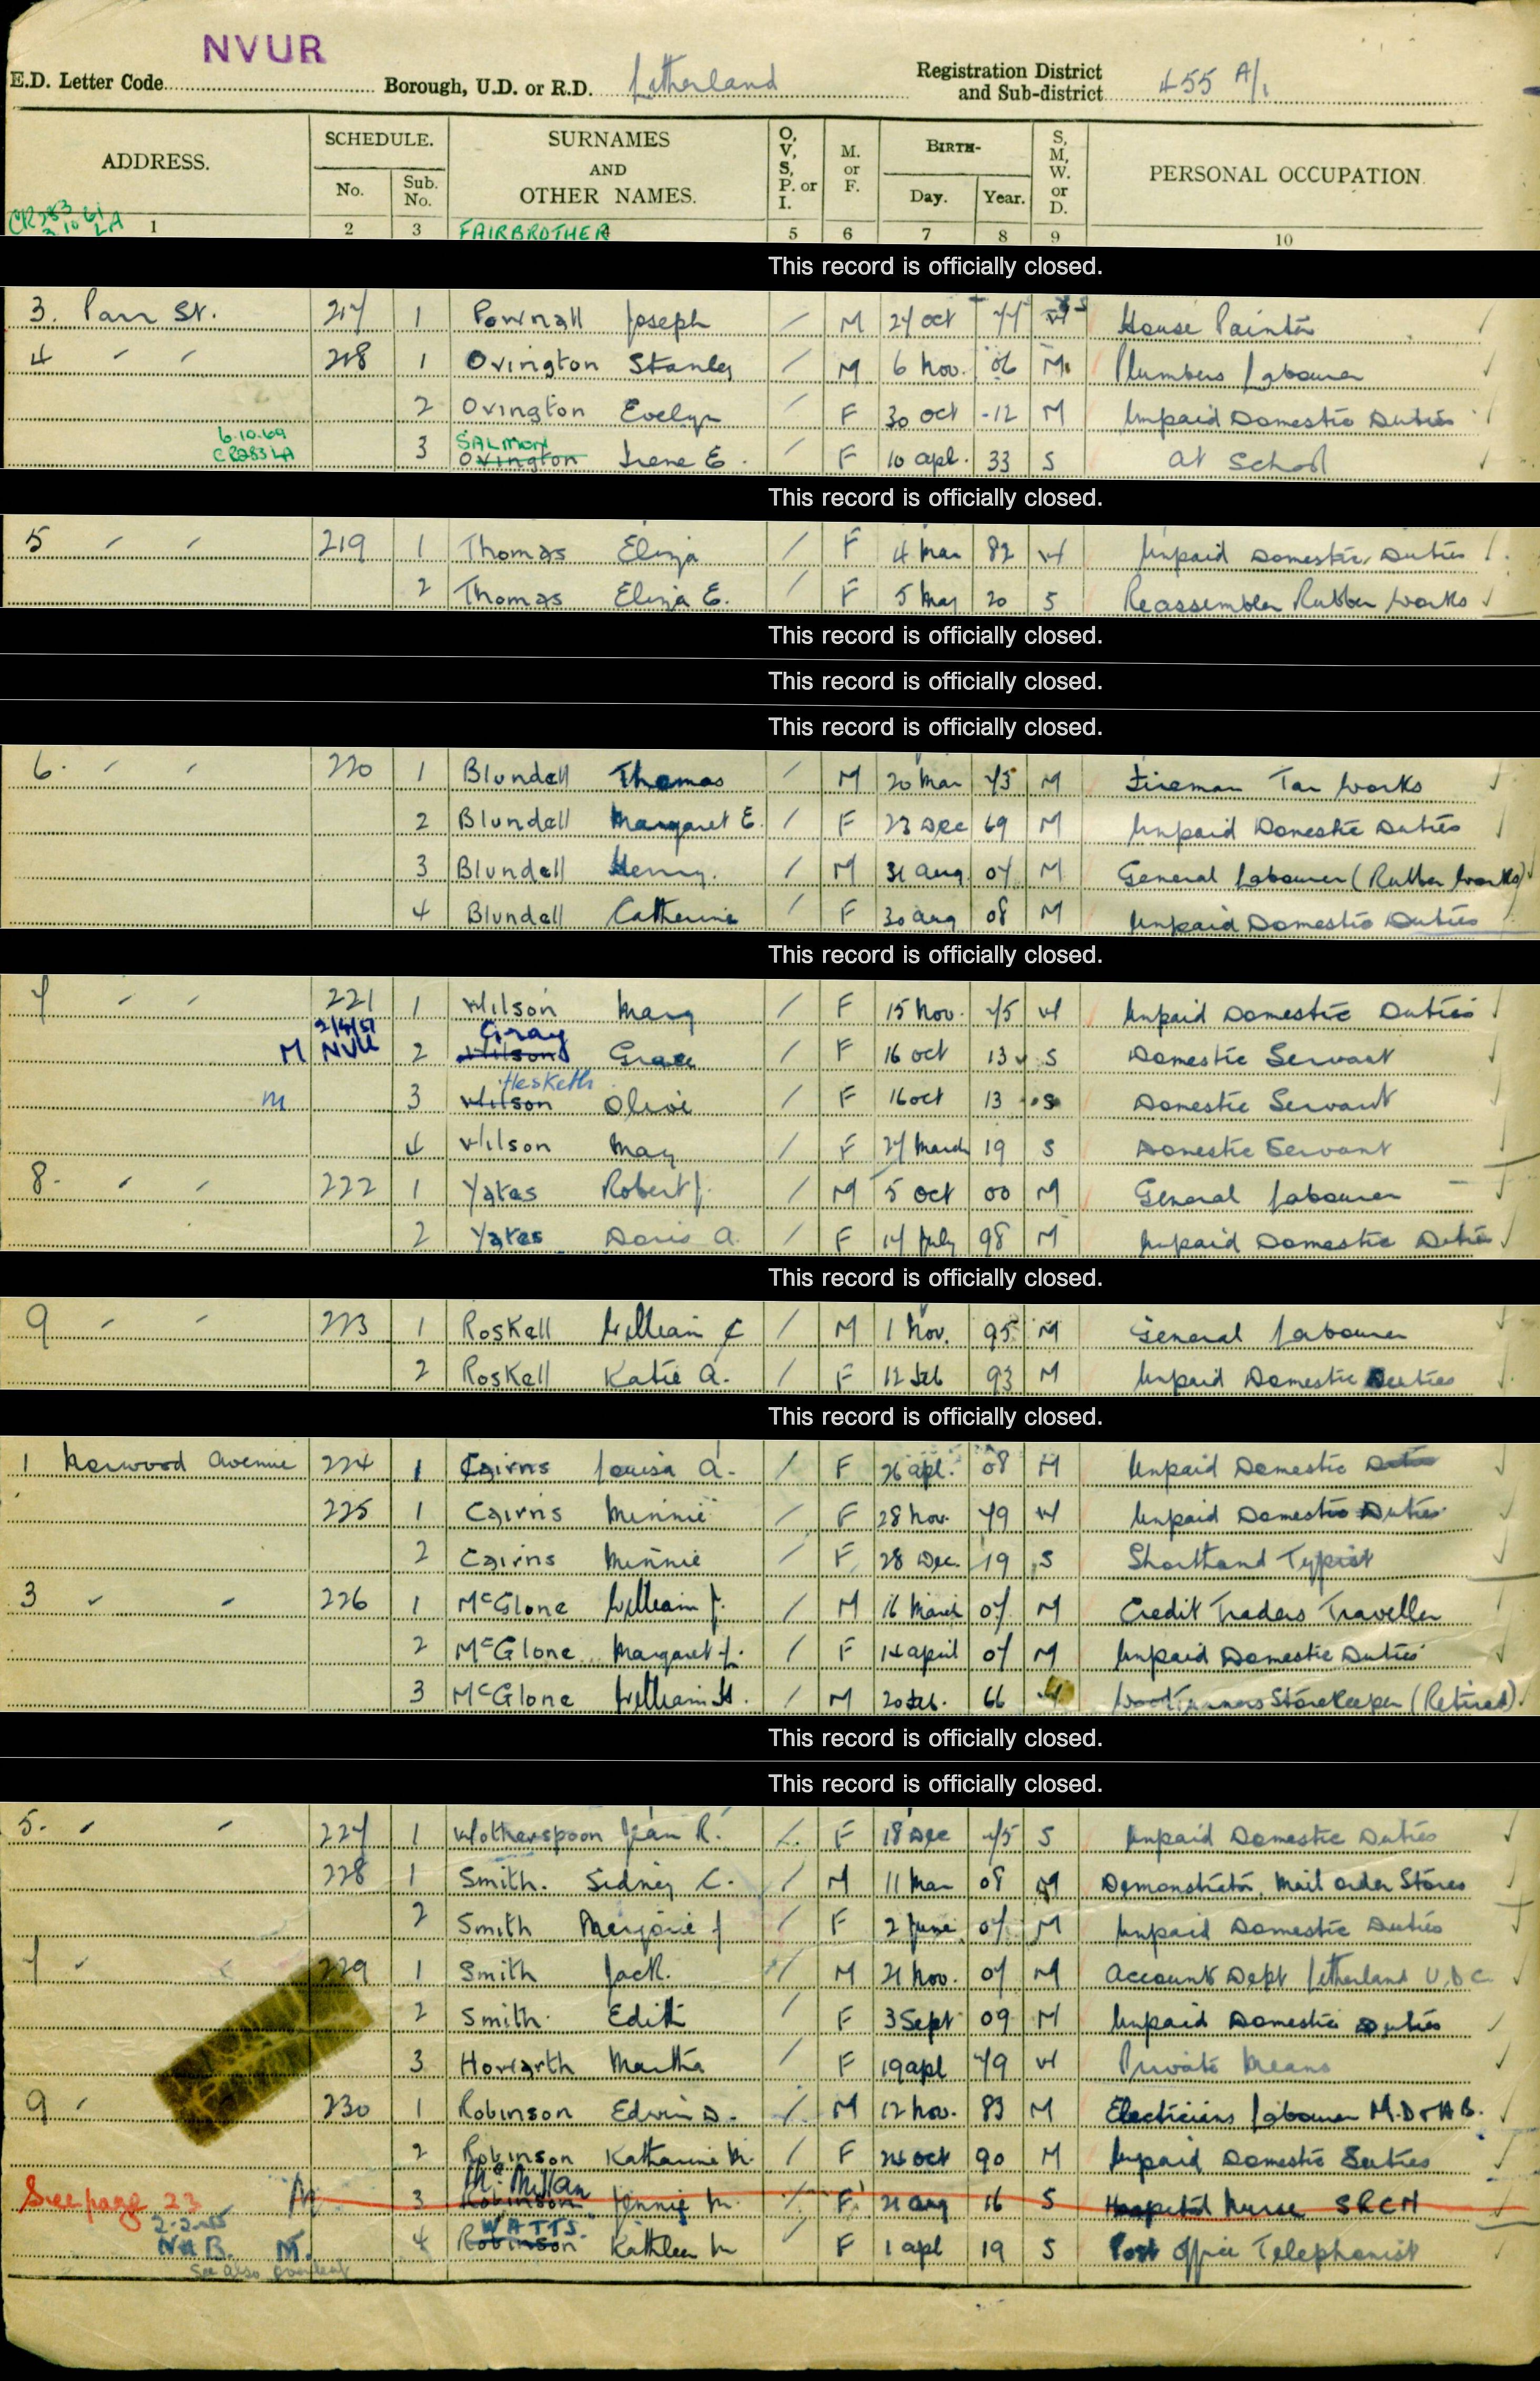 NVUR
E.D. Letter Code Borough, U.D. or R.D. Litherland Registration District and Sub-district 455 A/1
ADDRESS. SCHEDULE. No. Sub. No. SURNAMES AND OTHER NAMES. O, V, S, P. or I. M. or F. BIRTH- Day. Year. S, M, W. or D. PERSONAL OCCUPATION
CR283 3 10 61 LA
1 2 3 FAIRBROTHER 4 5 6 7 8 9 10
This record is officially closed.
3. Parr St. 217 1 Pownall Joseph / M 27 Oct 77 House Painter
4 " " 218 1 Ovington Stanley / M 6 Nov. 06 M Plumbers Labourer
2 Ovington Evelyn / F 30 Oct 12 M Unpaid Domestic Duties
6.10.69 CR283 LA 3 SALMON Ovington Irene E. / F 10 Apl. 33 S At School
This record is officially closed.
5 " " 219 1 Thomas Eliza / F 4 Mar 82 W Unpaid Domestic Duties
2 Thomas Eliza E. / F 5 May 20 S Reassembler Rubber Works
This record is officially closed.
This record is officially closed.
This record is officially closed.
6. " " 220 1 Blundell Thomas / M 20 Mar 75 M Fireman Tar Works
2 Blundell Margaret E. / F 23 Dec 69 M Unpaid Domestic Duties
3 Blundell Henry. / M 31 Aug 07 M General Labourer (Rubber Works)
4 Blundell Catherine / F 30 Aug 08 M Unpaid Domestic Duties
This record is officially closed.
7 " " 221 1 Wilson Mary / F 15 Nov. 75 W Unpaid Domestic Duties
M NVU 2 Gray Wilson Grace / F 16 Oct 13 S Domestic Servant
m 3 Hesketh Wilson Olive / F 16 Oct 13 S Domestic Servant
4 Wilson May / F 27 March 19 S Domestic Servant
8. " " 222 1 Yates Robert J. / M 5 Oct 00 M General Labourer
2 Yates Doris A. / F 14 July 98 M Unpaid Domestic Duties
This record is officially closed.
9 " " 223 1 Roskell William C / M 1 Nov. 95 M General Labourer
2 Roskell Katie A. / F 12 Feb 93 M Unpaid Domestic Duties
This record is officially closed.
1 Norwood Avenue 224 1 Cairns Louisa A. / F 26 Apl. 08 M Unpaid Domestic Duties
225 1 Cairns Minnie / F 28 Nov. 79 W Unpaid Domestic Duties
2 Cairns Minnie / F 28 Dec. 19 S Shorthand Typist
3 " " 226 1 McGlone William J. / M 16 March 07 M Credit Traders Traveller
2 McGlone Margaret / F 14 April 07 M Unpaid Domestic Duties
3 McGlone William H. / M 20 Feb. 66 W Storekeeper (Retired)
This record is officially closed.
This record is officially closed.
5. " " 227 1 Wotherspoon Jean R. / F 18 Dec 75 S Unpaid Domestic Duties
228 1 Smith. Sidney C. / M 11 Mar 08 M Demonstrator, Mail Order Stores
2 Smith Marjorie J / F 2 June 07 M Unpaid Domestic Duties
7 " " 229 1 Smith Jack. / M 21 Nov. 07 M Accounts Dept Litherland U.D.C.
2 Smith. Edith / F 3 Sept 09 M Unpaid Domestic Duties
3 Howarth Martha / F 19 Apl 79 W Private Means
9 " 230 1 Robinson Edwin D. / M 12 Nov. 83 M Electricians Labourer M.D & H B.
2 Robinson Katharine M. / F 24 Oct 90 M Unpaid Domestic Duties
See page 23 M 3 McMillan Robinson Jennie M. / F 21 Aug 16 S Hospital Nurse SRCN
NAB. M. 4 WATTS. Robinson Kathleen M / F 1 Apl 19 S Post Office Telephonist
See also overleaf